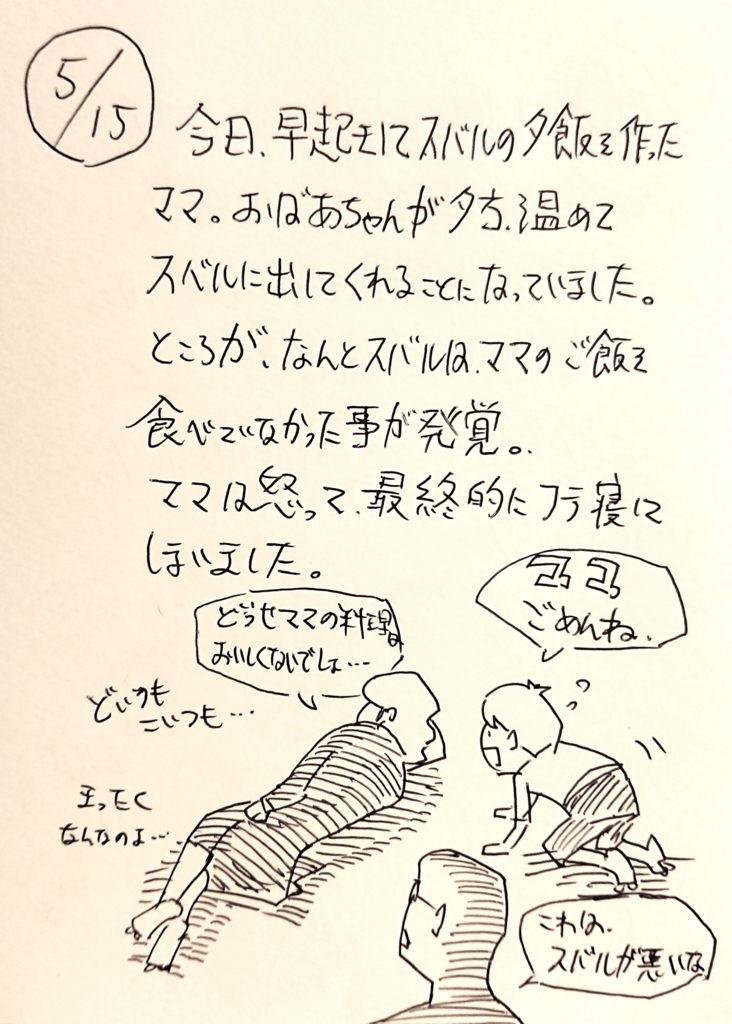 5/15
今日、早起きしてスバルの夕飯を作った
ママ。おばあちゃんが夕方、温めて
スバルに出してくれることになっていました。
ところが、なんとスバルは、ママのご飯を
食べていなかった事が発覚。
ママは怒って、最終的にフテ寝して
しまいました。
ママ
ごめんね、
どうせママの料理は
おいしくないでしょ…
どいつも
こいつも…
まったく
なんなのよ…
これは、
スバルが悪いな